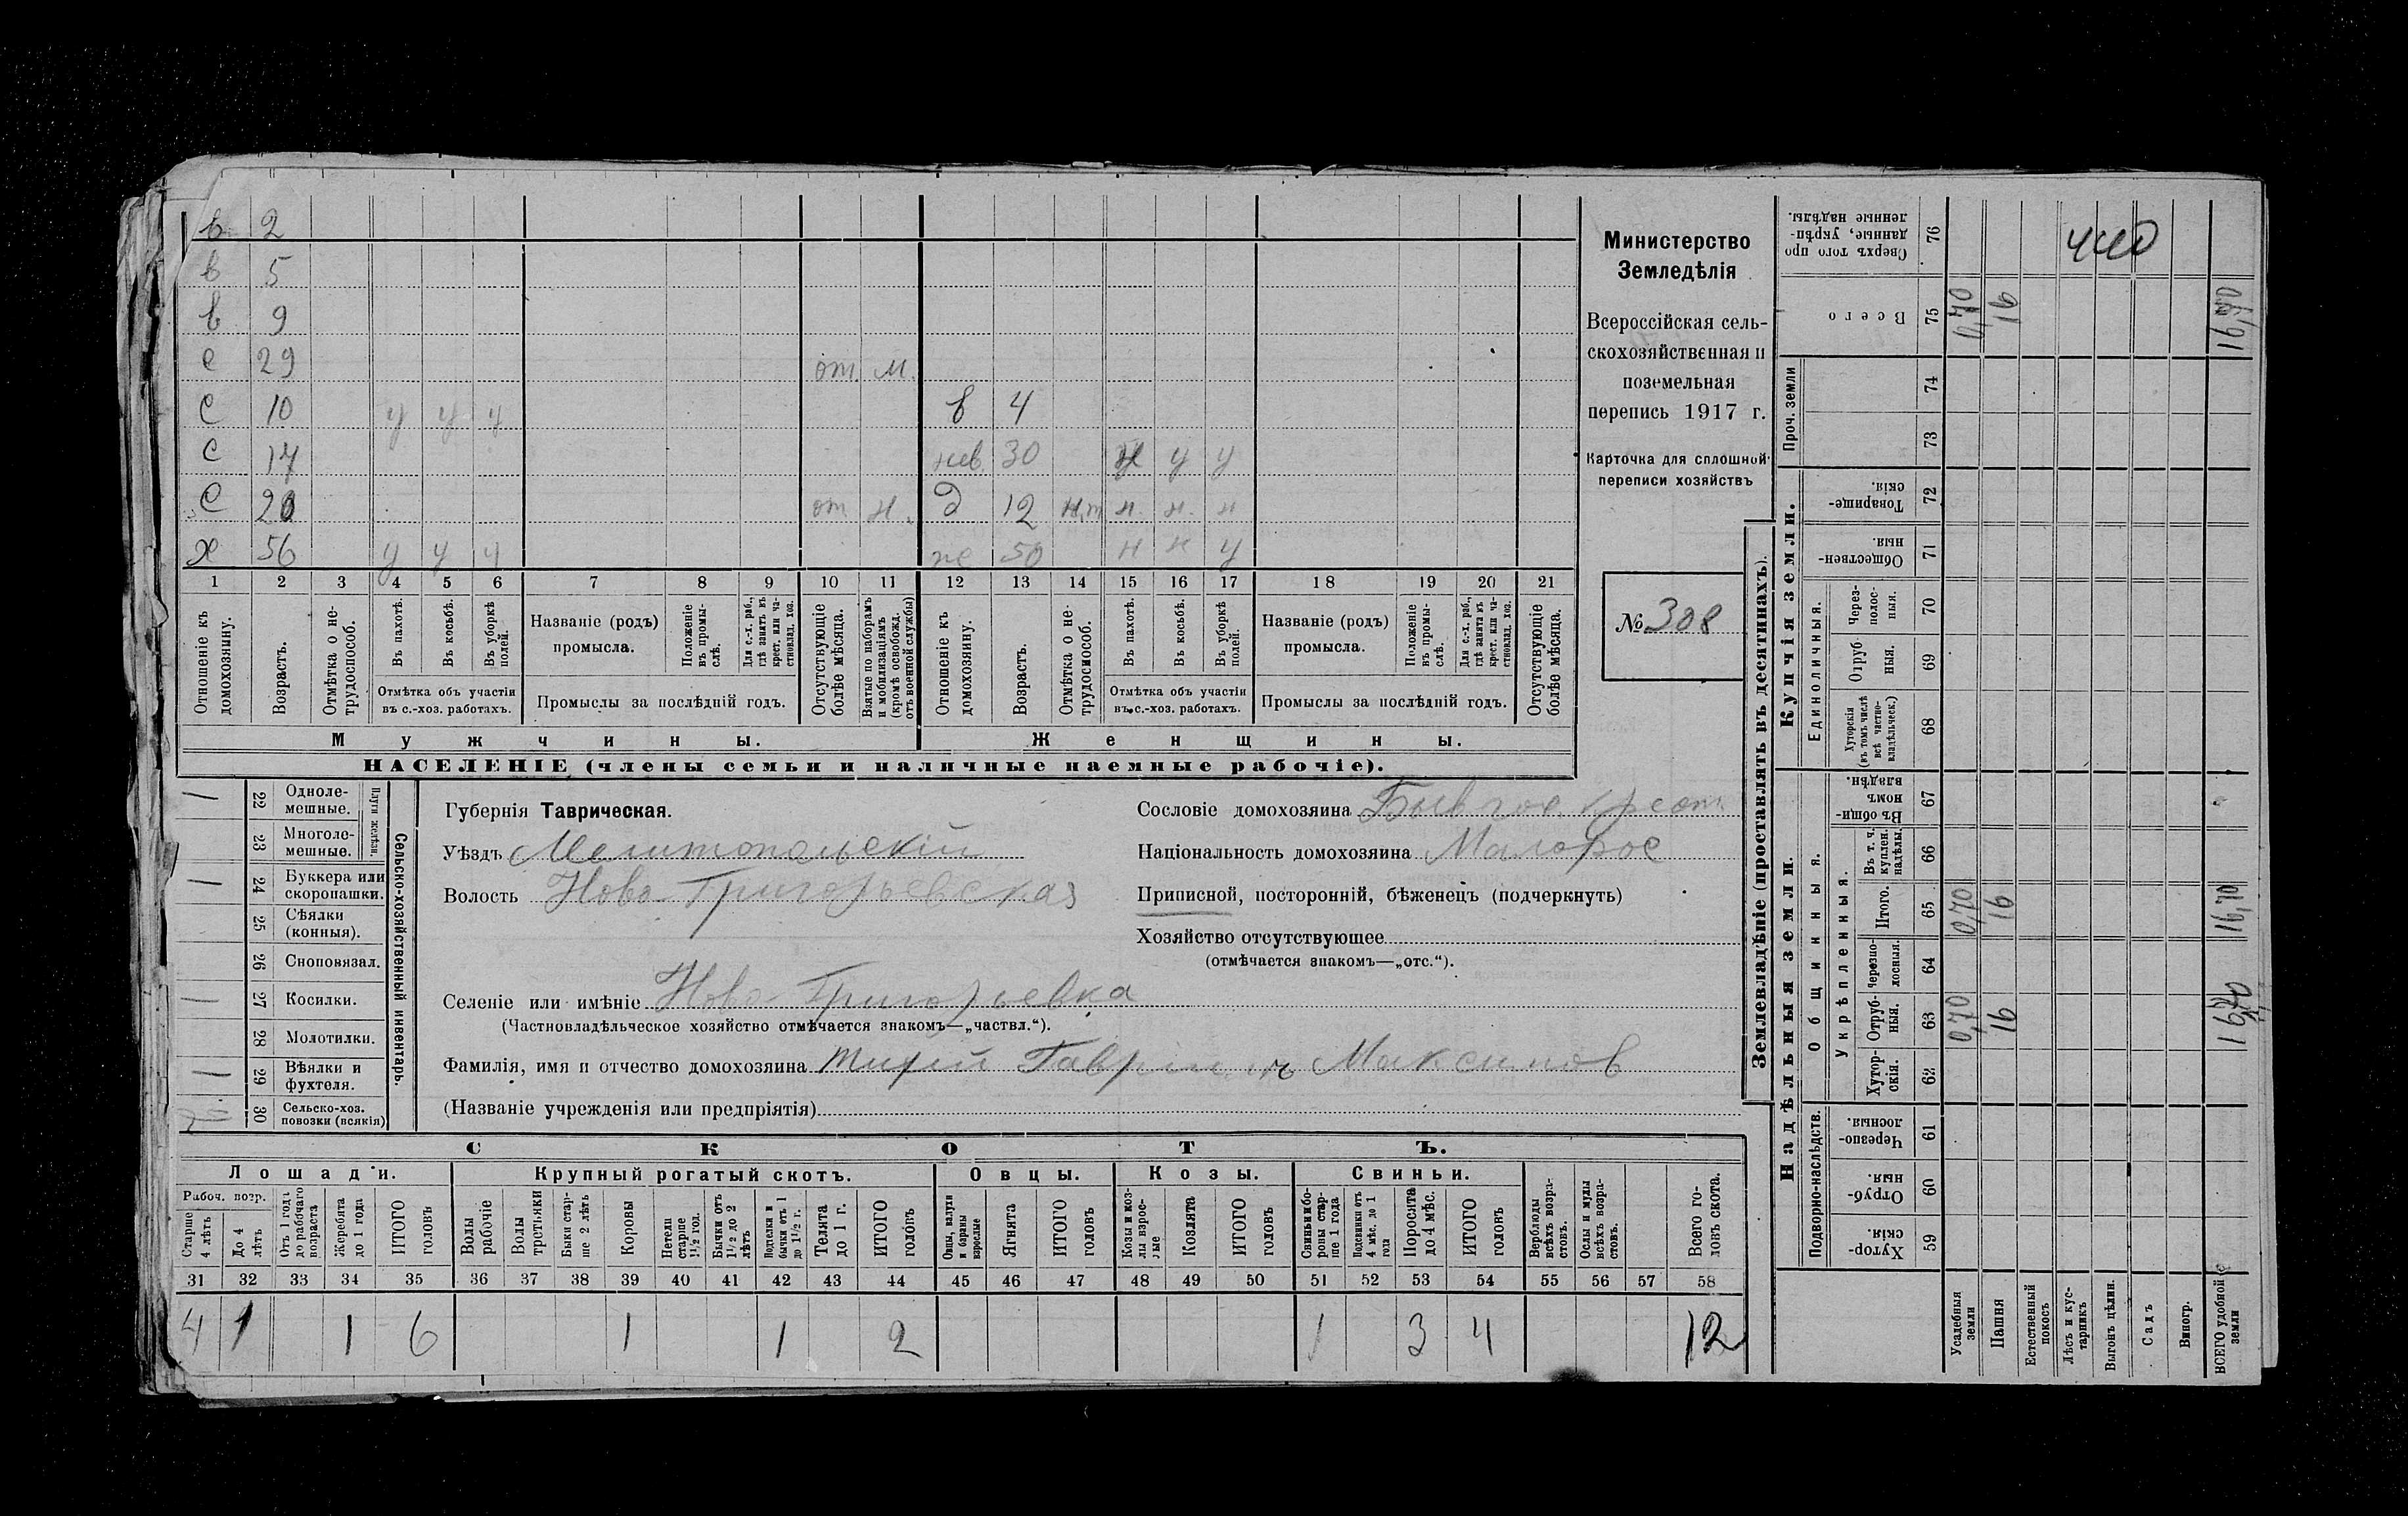 в 2
в 5
в 9
с 29 от. м.
с 10 у у у в 4
с 14 нев. 30 у у у
с 20 от. н. д 12 н. н. н
х 56 у у у же 50 н н у
1 2 3 4 5 6 7 8 9 10 11 12 13 14 15 16 17 18 19 20 21
Отношеніе къ домохозяину.
Возрастъ.
Отмѣтка о нетрудоспособ.
Въ пахотѣ.
Въ косьбѣ.
Въ уборкѣ полей.
Отмѣтка объ участіи
въ с.-хоз. работахъ.
Названіе (родъ)
промысла.
Положеніе въ промыслѣ.
Для с.-х. раб., гдѣ занятъ въ крест. или частновлад. хоз.
Промыслы за послѣдній годъ.
Отсутствующіе болѣе мѣсяца.
Взятые по наборамъ и мобилизаціямъ (кромѣ освобожд. отъ военной службы)
Отношеніе къ домохозяину.
Возрастъ.
Отмѣтка о нетрудоспособ.
Въ пахотѣ.
Въ косьбѣ.
Въ уборкѣ полей.
Отмѣтка объ участіи
въ с.-хоз. работахъ.
Названіе (родъ)
промысла.
Положеніе въ промыслѣ.
Для с.-х. раб., гдѣ занята въ крест. или частновлад. хоз.
Промыслы за послѣдній годъ.
Отсутствующіе болѣе мѣсяца.
Мужчины.
Женщины.
НАСЕЛЕНІЕ (члены семьи и наличные наемные рабочіе).
Министерство
Земледѣлія
Всероссійская сель-
скохозяйственная и
поземельная
перепись 1917 г.
Карточка для сплошной
переписи хозяйствъ
№ 308
22 Одноле-
мешные.
23 Многоле-
мешные.
Плуги желѣзн.
24 Буккера или
скоропашки.
25 Сѣялки
(конныя).
26 Сноповязал.
27 Косилки.
28 Молотилки.
29 Вѣялки и
фухтеля.
30 Сельско-хоз.
повозки (всякія)
Сельско-хозяйственный инвентарь.
Губернія Таврическая.
Уѣздъ Мелитопольскій
Волость Ново-Григорьевская
Селеніе или имѣніе Ново-Григорьевка
(Частновладѣльческое хозяйство отмѣчается знакомъ—„частвл.“).
Фамилія, имя и отчество домохозяина Максимов
(Названіе учрежденія или предпріятія)
Сословіе домохозяина
Національность домохозяина Малорос
Приписной, посторонній, бѣженецъ (подчеркнуть)
Хозяйство отсутствующее
(отмѣчается знакомъ—„отс.“).
СКОТЪ.
Лошади.
Крупный рогатый скотъ.
Овцы.
Козы.
Свиньи.
Рабоч. возр.
Старше 4 лѣтъ
До 4 лѣтъ
Отъ 1 года до рабочаго возраста
Жеребята до 1 года
ИТОГО головъ
Волы рабочіе
Волы третьяки
Быки старше 2 лѣтъ
Коровы
Нетели старше 1½ год.
Бычки отъ 1½ до 2 лѣтъ
Подтелки и бычки отъ 1 до 1½ г.
Телята до 1 г.
ИТОГО головъ
Овцы, валухи и бараны взрослые
Ягнята
ИТОГО головъ
Козы и козлы взрослые
Козлята
ИТОГО головъ
Свиньи и боровы старше 1 года
Подсвинки отъ 4 мѣс. до 1 года
Поросята до 4 мѣс.
ИТОГО головъ
Верблюды всѣхъ возрастовъ.
Ослы и мулы всѣхъ возрастовъ.
Всего головъ скота.
31 32 33 34 35 36 37 38 39 40 41 42 43 44 45 46 47 48 49 50 51 52 53 54 55 56 57 58
4 1 1 6 1 1 2 1 3 4 12
Землевладѣніе (проставлять въ десятинахъ).
Купчія земли.
Надѣльныя земли.
440
76 Сверхъ того проданные, укрѣпленные надѣлы.
75 Всего 0,70 16 16,70
Проч. земли
74
73
72 Товарищескія.
71 Общественныя.
Единоличныя.
70 Черезполосныя.
69 Отрубныя.
68 Хуторскія (въ томъ числѣ всѣ частновладѣльческ.)
Общинныя.
67 Въ общинномъ владѣн.
66 Въ т. ч. куплен. надѣлы.
Укрѣпленныя.
65 Итого. 0,70 16 16,70
64 Черезполосныя.
63 Отрубныя. 0,70 16 16,70
62 Хуторскія.
Подворно-наслѣдств.
61 Черезполосныя.
60 Отрубныя.
59 Хуторскія.
Усадебныя земли
Пашня
Естественный покосъ
Лѣсъ и кустарникъ
Выгонъ цѣлин.
Садъ
Виногр.
ВСЕГО удобной земли